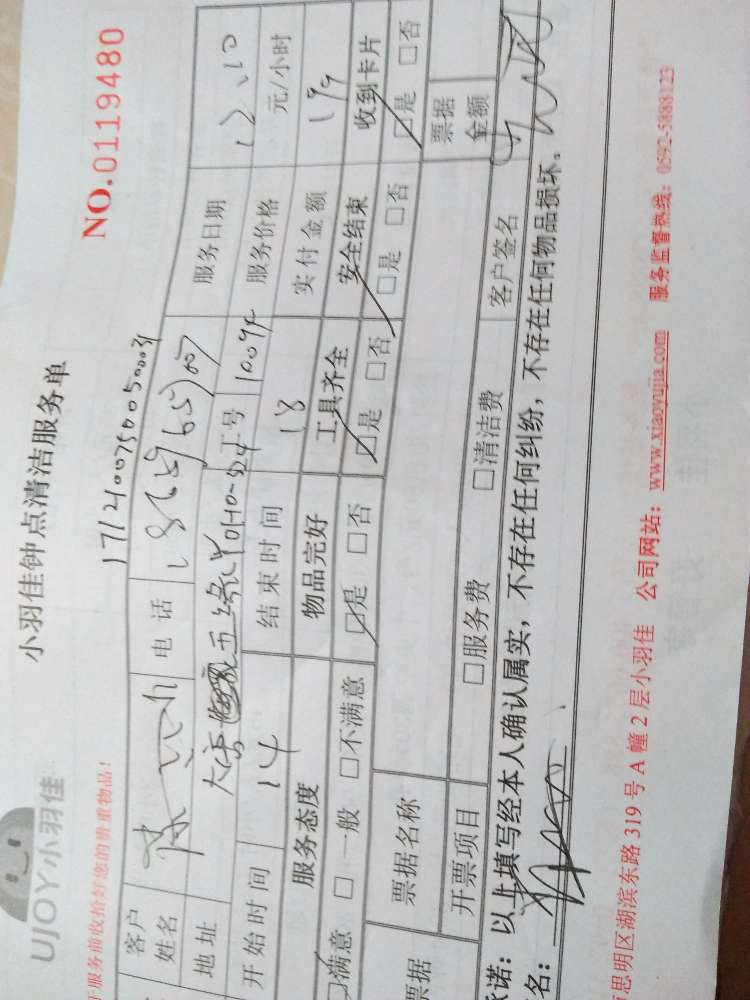 小羽佳钟点清洁服务单
UJOY小羽佳
NO.0119480
服务前收拾好您的贵重物品！
17121007500050003
客户姓名 电话 服务日期 12.10
地址 工号 10094 服务价格 元/小时
开始时间 14 结束时间 18 实付金额 199
服务态度 物品完好 工具齐全 安全结束 收到卡片
□满意 □一般 □不满意 □是 □否 □是 □否 □是 □否 □是 □否
票据 票据名称 票据金额
开票项目 □服务费 □清洁费 客户签名
诺：以上填写经本人确认属实，不存在任何纠纷，不存在任何物品损坏。
名：
思明区湖滨东路 319 号 A 幢 2 层小羽佳 公司网站：www.xiaoyujia.com 服务监督热线：0592-5888123